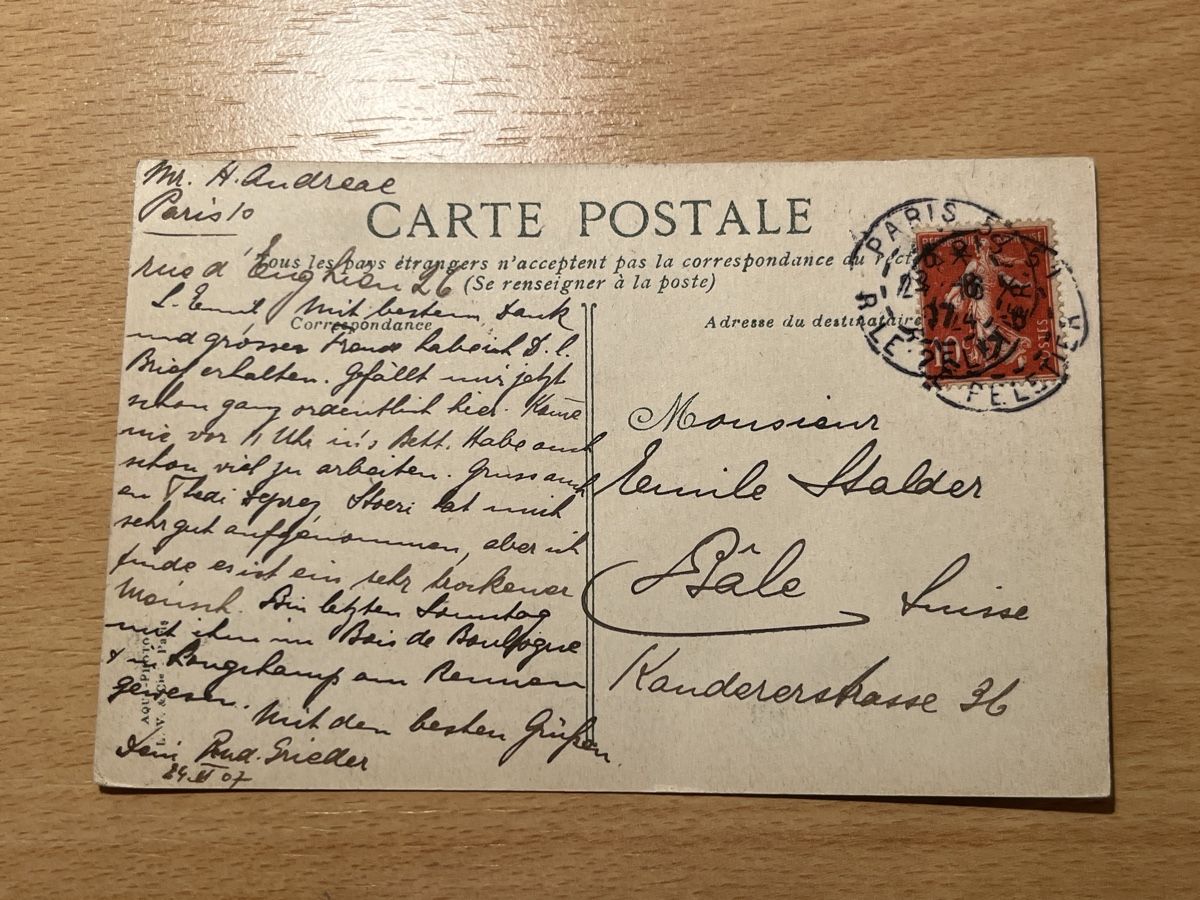 Mr. H. Andreae
Paris 10
CARTE POSTALE
Tous les pays étrangers n'acceptent pas la correspondance au recto
(Se renseigner à la poste)
rue d'Enghien 26
Correspondance
L. Emil Mit bestem Dank
und grosser Freude habe ich D. l.
Brief erhalten. Gefällt mir jetzt
schon ganz ordentlich hier. Komme
nie vor 11 Uhr in's Bett. Habe auch
schon viel zu arbeiten. Gruss auch
an Thedi Stoeri hat mich
sehr gut aufgenommen, aber ich
finde es ist ein sehr trockener
Mensch. Bin letzten Sonntag
mit ihm im Bois de Boulogne
Longchamp am Rennen
gewesen.
Mit den besten Grüßen
Dein Rud. Grieder
24. VI 07
AQUA-PHOTO
L. V. & Cie. Paris
Adresse du destinataire
Monsieur
Emile Stalder
Bâle
Suisse
Kandererstrasse 36
PARIS
R. LE PELETIER
10
POSTES